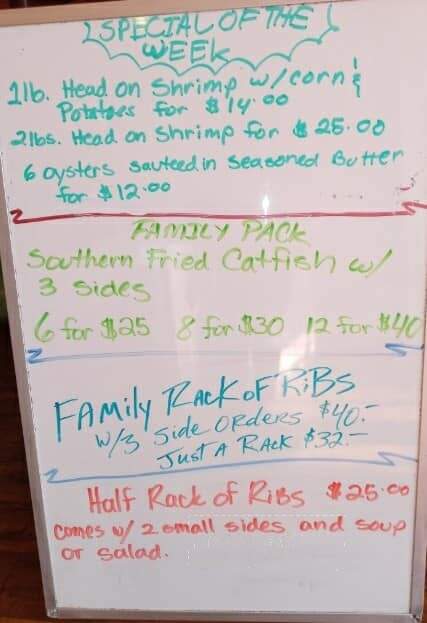 SPECIAL OF THE
WEEK
1lb. Head on Shrimp w/corn &
Potatoes for $14.00
2lbs. Head on Shrimp for $25.00
6 oysters sauteed in Seasoned Butter
for $12.00
FAMILY PACK
Southern Fried Catfish w/
3 Sides
6 for $25 8 for $30 12 for $40
FAMily RACK OF RiBS
w/3 Side ORDERS $40.-
JUST A RACK $32.-
Half Rack of RIBS $25.00
comes w/ 2 small sides and soup
or salad.